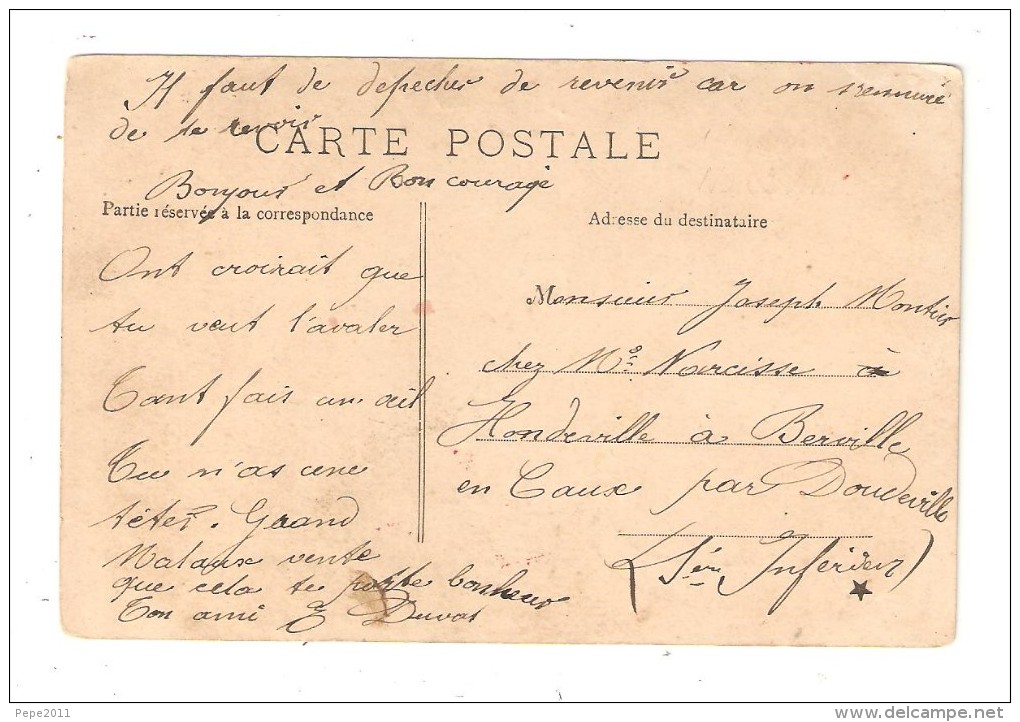 Il faut de depecher de revenir car on s'ennuie
de te revoir
CARTE POSTALE
Bonjour et Bon courage
Partie réservée à la correspondance
Adresse du destinataire
Ont croirait que
tu veut l'avaler
Tant fais un œil
Tu n'as une
têtes. Grand
vente
que cela te porte bonheur
Ton ami E Duval
Monsieur Joseph Montier
chez Mr Narcisse à
Hondeville à Berville
en Caux par Doudeville
(Seine Inférieur)
Pepe2011
www.delcampe.net